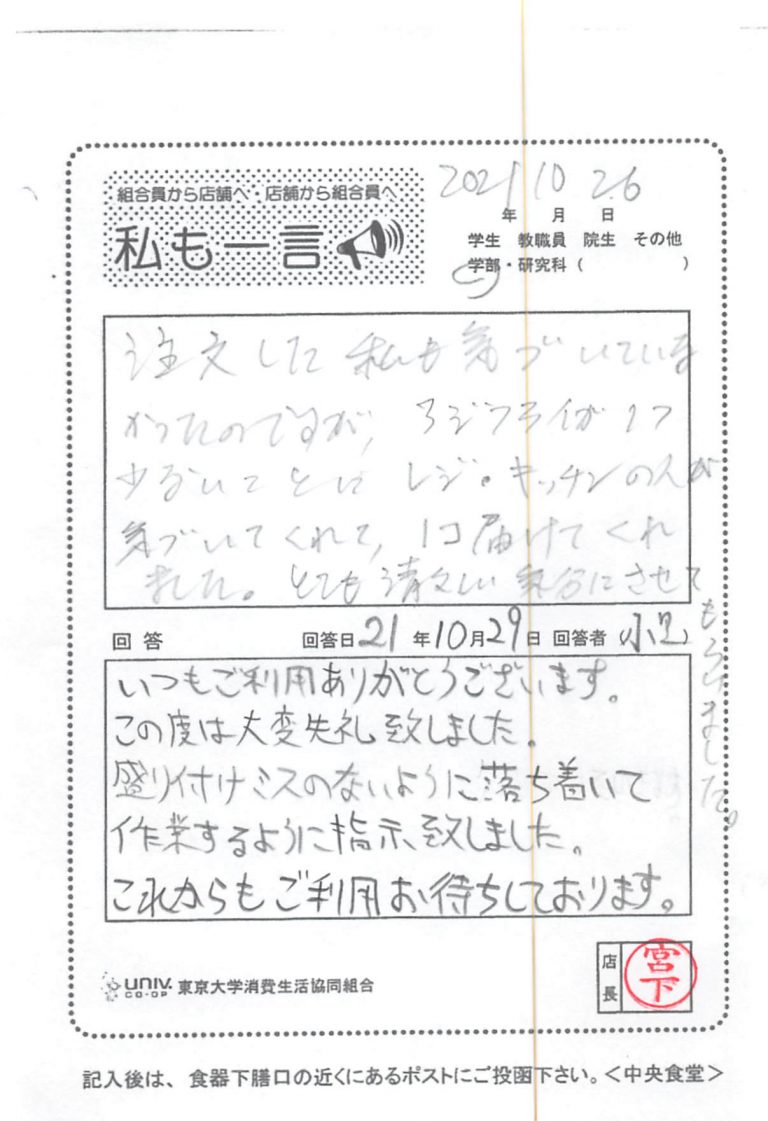 組合員から店舗へ・店舗から組合員へ
私も一言
2021 10 26
年 月 日
学生 教職員 院生 その他
学部・研究科( )
注文した私も気づいていな
かったのですが、アジフライが1つ
少ないことにレジ。キッチンの人が
気づいてくれて、1コ届けてくれ
ました。とても清々しい気分にさせて
もらいました。
回答 回答日21年10月29日 回答者(小足)
いつもご利用ありがとうございます。
この度は大変失礼致しました。
盛り付けミスのないように落ち着いて
作業するように指示致しました。
これからもご利用お待ちしております。
UNIV. CO-OP 東京大学消費生活協同組合
店長 宮下
記入後は、食器下膳口の近くにあるポストにご投函下さい。<中央食堂>